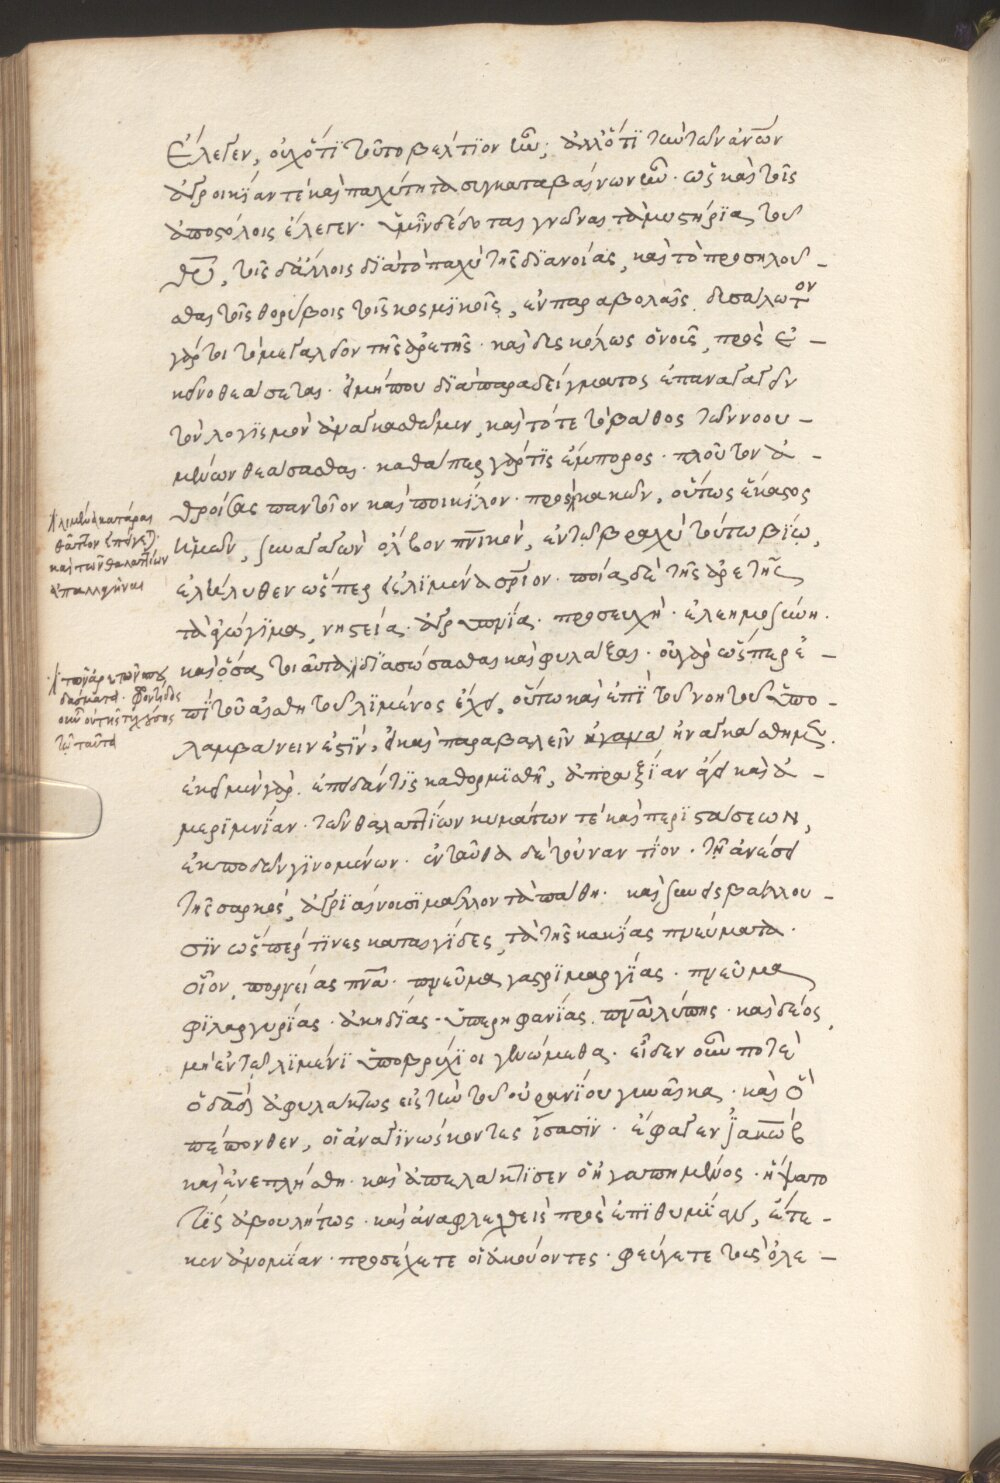 ἔλεγεν, οὐχ ὅτι τοῦτο βέλτιον ἦν; ἀλλ' ὅτι τῇ τῶν ἀν̅ων
ἀγροικίαν τὲ καὶ παχύτητα συγκαταβαίνων ἦν. ὡς καὶ τοῖς
ἀποστόλοις ἔλεγεν. ὑμῖν δέδοται γνῶναι τὰ μυστήρια τοῦ
θ̅υ̅, τοῖς δ' ἄλλοις διὰ τὸ παχὺ τῆς διανοίας, καὶ τὸ προσηλοῦ-
σθαι τοῖς θορύβοις τοῖς κοσμικοῖς, ἐν παραβολαῖς. δυσάλωτον
γάρ τοι τὸ μεγαλεῖον τῆς ἀρετῆς. καὶ δὶς καλῶς ὁ νοῦς, πρὸς ἐ-
κεῖνο θεάσεται. εἰ μήπου διὰ παραδείγματος ἐπανάγειν
τὸν λογισμὸν ἀναγκασθῶμεν, καὶ τότε τὸ βάθος τῶν νοου-
μένων θεάσασθαι. καθάπερ γάρ τις ἔμπορος. πλοῦτον ἀ-
θροίσας παντοῖον καὶ ποικίλον. πρὸς κακῶν, οὕτως ἕκαστος
ἡμῶν, συναγαγὼν ὄλβον πνικὸν, ἐν τῷ βραχεῖ τούτω βίω,
ἐλήλυθεν ὥσπερ εἰς λιμένα ὅρμον. ποία δὲ τῆς ἀρετῆς
τὰ ἀγώγιμα, νηστεία. ἀγρυπνία. προσευχή. ἐλεημοσύνη.
καὶ ὅσα τοιαῦτα διασώσασθαι καὶ φυλάξαι. οὐ γὰρ ὥσπερ ἐ-
πὶ τοῦ αἰσθητοῦ λιμένος ἔχει, οὕτω καὶ ἐπὶ τοῦ νοητοῦ ὑπο-
λαμβάνειν ἐστὶν, εἰ καὶ παραβαλεῖν ἠναγκάσθημεν.
ἐκεῖ μὲν γὰρ. ἐπειδάν τις καθορμισθῆ, ἀπραξίαν ἄγει καὶ ἀ-
μεριμνίαν. τῶν θαλαττίων κυμάτων τὲ καὶ περιστάσεων,
ἐκποδὼν γινομένων. ἐνταῦθα δὲ τοὐναντίον. τῇ ἀνέσει
τῆς σαρκός, ἀγριαίνουσι μᾶλλον τὰ πάθη. καὶ συνεισβάλλου-
σιν ὥσπερ τινες καταιγίδες, τὰ τῆς κακίας πνεύματα.
οἷον, πορνείας πνα̅. πνεῦμα γαστριμαργίας. πνεῦμα
φιλαργυρίας. ἀκηδίας. ὑπερηφανίας. πνα̅ λύπης. καὶ δέος,
μὴ ἐν τῷ λιμένι ὑποβρύχιοι γενώμεθα. εἶδεν οὖν ποτὲ
ὁ δα̅δ̅ ἀφυλάκτως εἰς τὴν τοῦ οὐρανίου γυναῖκα. καὶ ὃ
πέπονθεν, οἱ ἀναγινώσκοντες ἴσασιν. ἔφαγεν ἰακὼβ
καὶ ἐνεπλήσθη. καὶ ἀπελάκτισεν ὁ ἠγαπημένος. ἥψατο
τίς ἀβουλήτως. καὶ ἀναφλεχθεὶς πρὸς ἐπιθυμίαν, ἔτε-
κεν ἀνομίαν. προσέχετε οἱ ἀκούοντες. φεύγετε τοὺς ὀλε-
λιμένα κατάραι
θᾶττον ἐπείγε.
καὶ τῶν θαλαττίων
ἀπαλλαγῆναι
τῶν ἀρετῶν
φροντίδος
οὖν οὐ τῆς τυχούσης
ταῦτα